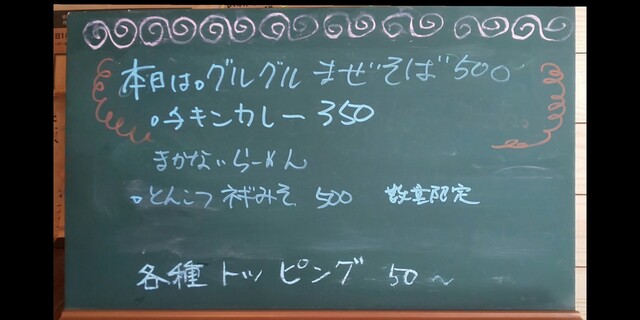 本日は。グルグルまぜそば500
。チキンカレー 350
まかないらーめん
。とんこつ ネギみそ 500 数量限定
各種 トッピング 50〜